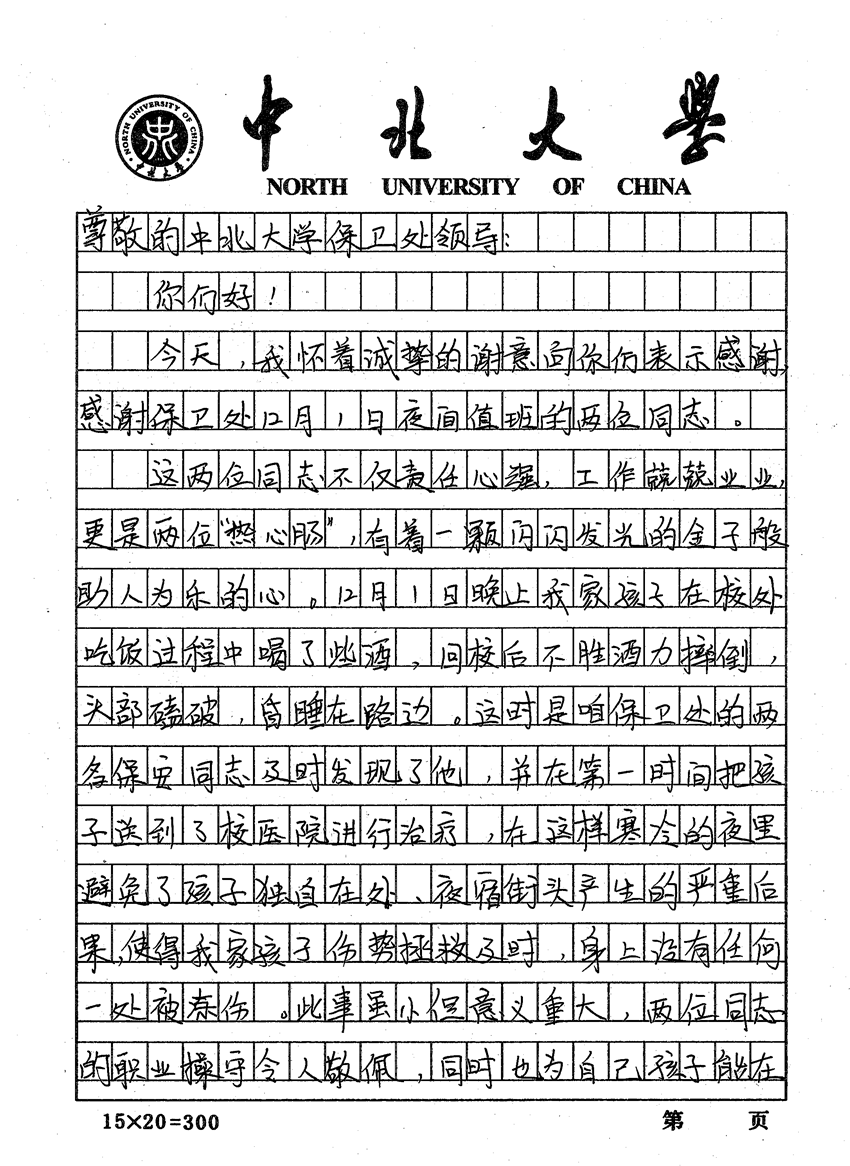 中北大学
NORTH UNIVERSITY OF CHINA
尊敬的中北大学保卫处领导：
你们好！
今天，我怀着诚挚的谢意向你们表示感谢，
感谢保卫处12月1日夜间值班的两位同志。
这两位同志不仅责任心强，工作兢兢业业，
更是两位“热心肠”，有着一颗闪闪发光的金子般
助人为乐的心。12月1日晚上我家孩子在校处
吃饭过程中喝了些酒，回校后不胜酒力摔倒，
头部磕破，昏睡在路边。这时是咱保卫处的两
名保安同志及时发现了他，并在第一时间把孩
子送到了校医院进行治疗，在这样寒冷的夜里
避免了孩子独自在处、夜宿街头产生的严重后
果，使得我家孩子伤势拯救及时，身上没有任何
一处被冻伤。此事虽小但意义重大，两位同志
的职业操守令人敬佩，同时也为自己孩子能在
15×20=300 第 页